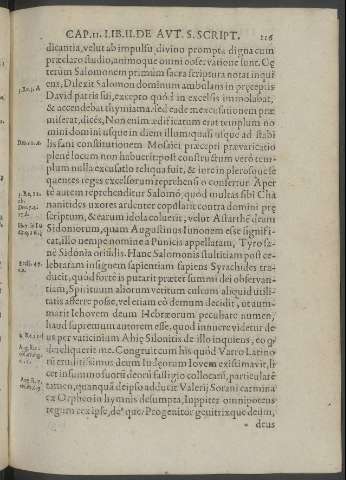 CAP. II. LIB. II. DE AVT. S. SCRIPT. 116
dicantia, velut ab impulsu, divino prompta digna cum
præclaro studio, animoque omni observatione sunt. Cę
terùm Salomonem primùm sacra scriptura notat inqui
ens, Dilexit Salomon dominum ambulans in pręceptis
David patris sui, excepto quòd in excelsis immolabat,
& accendebat thymiama. sed eadem excusationem præ
miserat, dicēs, Non enim ædificatum erat templum no
mini domini usque in diem illum: quasi usque ad stabi
lis fani constitutionem Mosaici præcepti prævaricatio
plenè locum non habuerit: post constructum verò tem-
plum nulla excusatio reliqua fuit, & iure in plerosque se
quentes reges excelsorum reprehensio confertur. Aper
tè autem reprehenditur Salomō, quòd multas sibi Cha
nanitides uxores ardenter copularit contra domini prę
scriptum, & earum idola coluerit, velut Astarthē deum
Sidoniorum, quam Augustinus Iunonem esse signifi-
cat, illo nempe nomine a Punicis appellatam, Tyro sa-
nè Sidonia orisidis. Hanc Salomonis stultitiam post ce
lebratam insignem sapientiam sapiens Syrachides tra-
ducit, quòd fortè is putarit præter summi dei observan-
tiam, Spirituum aliorum veterum cultum aliquid utili-
tatis afferre posse, vel etiam eò demum decidit, ut auru-
marit Iehovem deum Hebræorum peculiare numen,
haud supremum autorem esse, quod innuere videtur de
us per vaticinium Abię Silonitis de illo inquiens, eo qɔ
dereliquerit me. Congruit cum his quòd Varro Latino
rū eruditissimus deum Iudęorum Iovem existimavit, li
cet in summo suorū deorū fastigio collocatū, particularē
tamen, quanquā de ipso adducit Valerij Sorani carmina
ex Orpheo in hymnis desumpta, Iuppiter omnipotens
regum rex ipse, deûque, Progenitor genitrixque deum,
deus